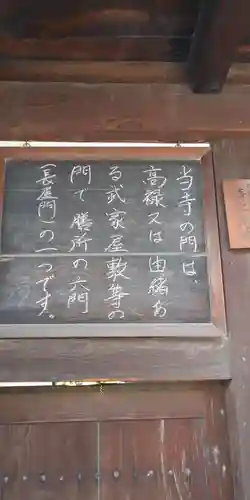 当寺の門は、
高禄又は由緒あ
る武家屋敷等の
門で膳所の六門
(長屋門)の一つです。